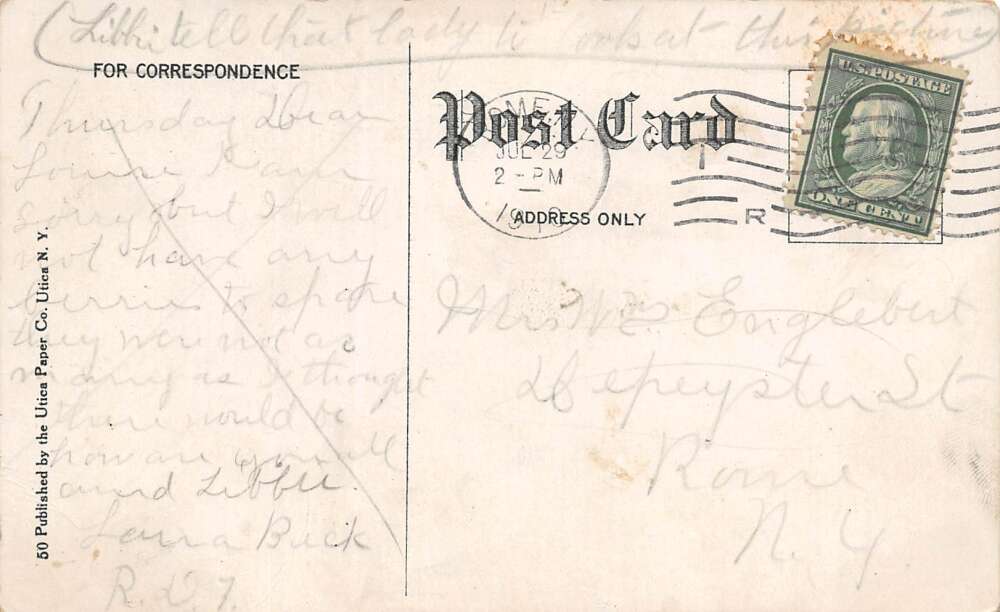 (Libbie tell that lady to look at this picture)
FOR CORRESPONDENCE
Thursday Dear
Louise I am
sorry but I will
not have any
berries to spare
they were not as
many as I thought
there would be
how are you all
and Libbie.
Laura Buck
R.D.7.
50 Published by the Utica Paper Co. Utica N. Y.
Post Card
ROME
JUL 29
2 - PM
ADDRESS ONLY
R
U.S. POSTAGE
ONE CENT
Mrs Wm Englebert
Depeyster St
Rome
N. Y.